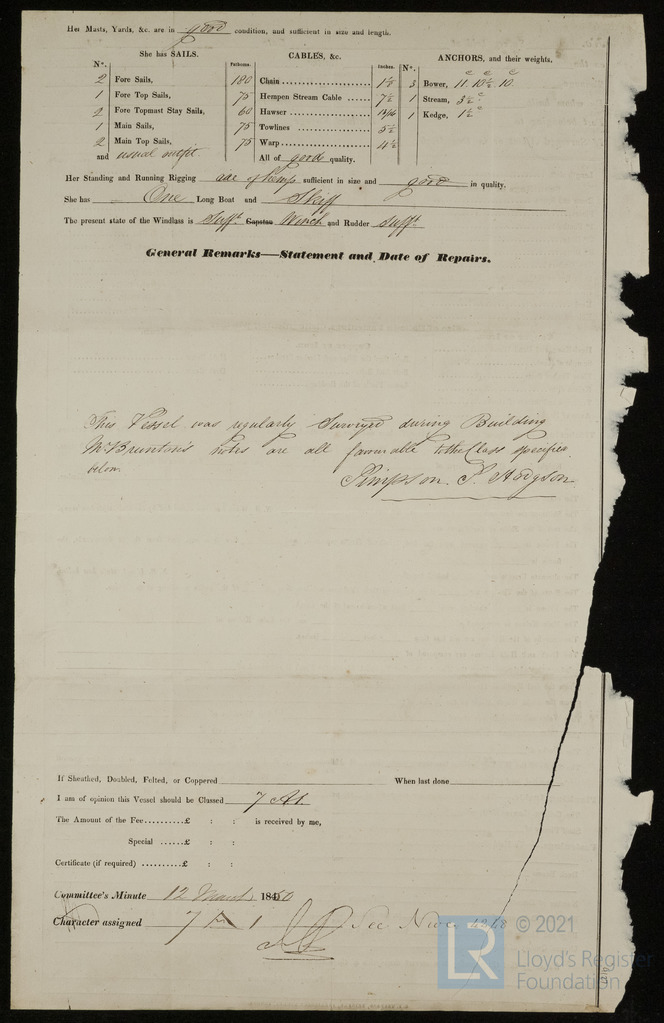 Her Masts, Yards, &c. are in good condition, and sufficient in size and length.
She has SAILS.
CABLES, &c.
ANCHORS, and their weights.
N°.
Fathoms.
Inches.
N°.
2 Fore Sails,
180 Chain
1 1/8
3 Bower, 11. 10½. 10
1 Fore Top Sails,
75 Hempen Stream Cable
7½
1 Stream, 3½
2 Fore Topmast Stay Sails,
60 Hawser
1 Kedge, 1½
1 Main Sails,
75 Towlines
5½
2 Main Top Sails,
75 Warp
4½
and usual outfit.
All of good quality.
Her Standing and Running Rigging of hemp sufficient in size and good in quality.
She has One Long Boat and Skiff
The present state of the Windlass is Sufft. Capstan Winch and Rudder Sufft.
General Remarks—Statement and Date of Repairs.
This Vessel was regularly Surveyed during Building
Mr Brunton's notes are all favourable to the Class specified
below.
Simpson P. Hodgson
If Sheathed, Doubled, Felted, or Coppered
When last done
I am of opinion this Vessel should be Classed 7 A1.
The Amount of the Fee £ : : is received by me,
Special £ : :
Certificate (if required) £ : :
Committee's Minute 12 March 1850
Character assigned 7 A 1
See 1218
LR © 2021
Lloyd's Register
Foundation